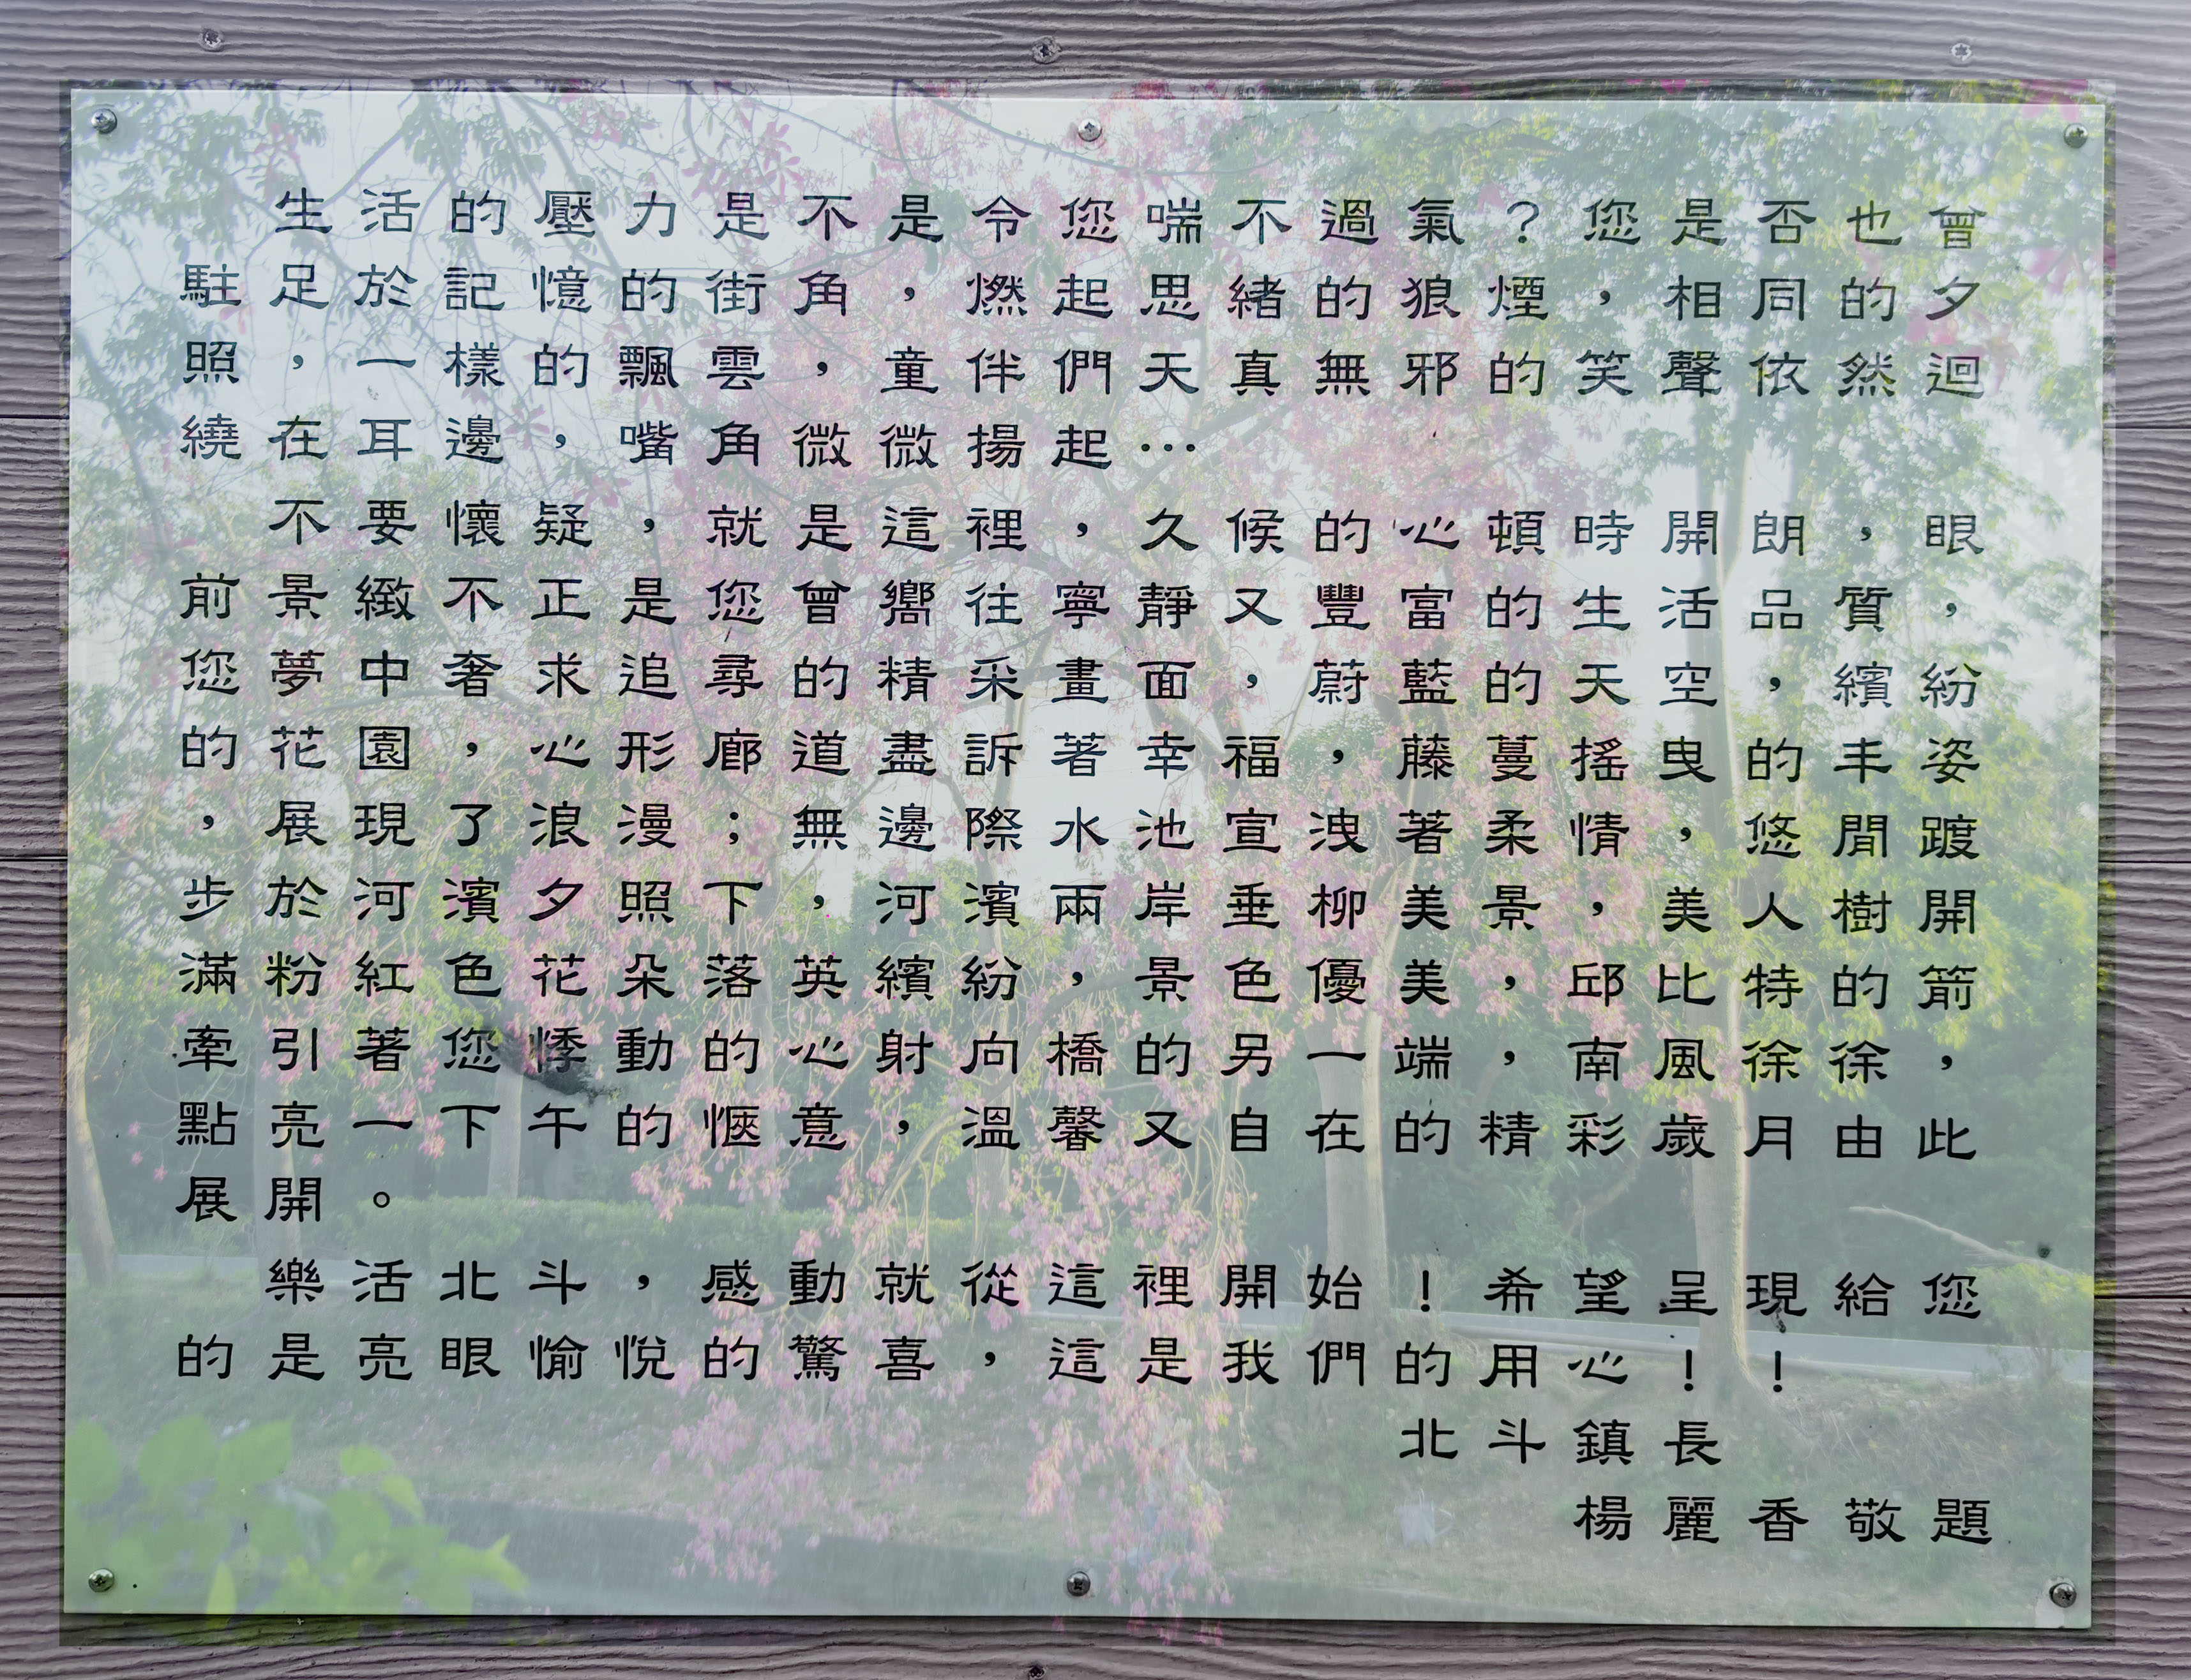 生活的壓力是不是令您喘不過氣？您是否也曾
駐足於記憶的街角，燃起思緒的狼煙，相同的夕
照，一樣的飄雲，童伴們天真無邪的笑聲依然迴
繞在耳邊，嘴角微微揚起…
不要懷疑，就是這裡，久候的心頓時開朗，眼
前景緻不正是您曾嚮往寧靜又豐富的生活品質，
您夢中奢求追尋的精采畫面，蔚藍的天空，繽紛
的花園，心形廊道盡訴著幸福，藤蔓搖曳的丰姿
，展現了浪漫；無邊際水池宣洩著柔情，悠閒踱
步於河濱夕照下，河濱兩岸垂柳美景，美人樹開
滿粉紅色花朵落英繽紛，景色優美，邱比特的箭
牽引著您悸動的心射向橋的另一端，南風徐徐，
點亮一下午的愜意，溫馨又自在的精彩歲月由此
展開。
樂活北斗，感動就從這裡開始！希望呈現給您
的是亮眼愉悅的驚喜，這是我們的用心！！
北斗鎮長
楊麗香敬題